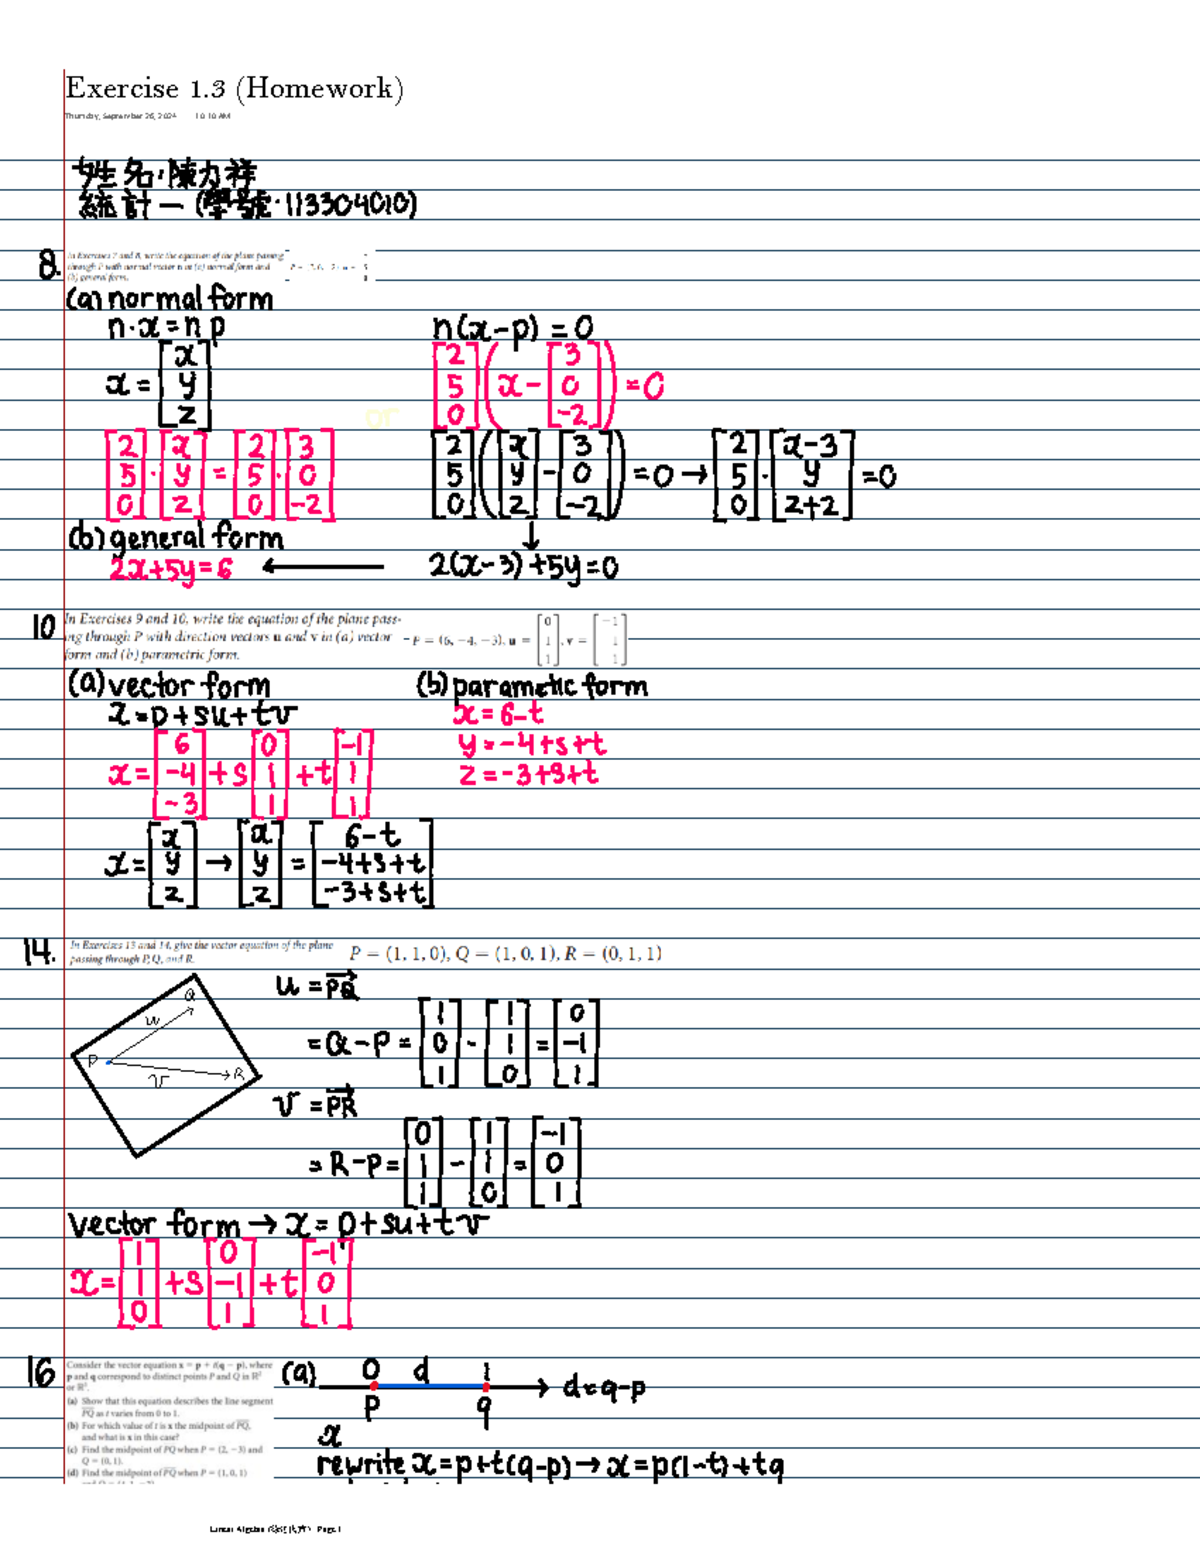 Exercise 1.3 (Homework)
Thursday, September 26, 2024 10:10 AM
姓名·陳力祥
統計一 (學號·113304010)
8. In Exercises 7 and 8, write the equation of the plane passing
through P with normal vector n in (a) normal form and
(b) general form.
(a) normal form
n·x = n p
n(x-p) = 0
x = [x y z]
[2 5 0](x - [3 0 -2]) = 0
or
[2 5 0]·[x y z] = [2 5 0]·[3 0 -2]
[2 5 0]([x y z] - [3 0 -2]) = 0 → [2 5 0]·[x-3 y z+2] = 0
(b) general form
↓
2x+5y=6 ← 2(x-3)+5y=0
10 In Exercises 9 and 10, write the equation of the plane pass-
ing through P with direction vectors u and v in (a) vector
form and (b) parametric form.
P = (6, -4, -3), u = [0 1 1], v = [-1 1 1]
(a) vector form
x = p + su + tv
x = [6 -4 -3] + s[0 1 1] + t[-1 1 1]
x = [x y z] → [x y z] = [6-t -4+s+t -3+s+t]
(b) parametic form
x = 6-t
y = -4+s+t
z = -3+s+t
14. In Exercises 13 and 14, give the vector equation of the plane
passing through P, Q, and R.
P = (1, 1, 0), Q = (1, 0, 1), R = (0, 1, 1)
Q
u
P
v
R
u = PQ
= Q - P = [1 0 1] - [1 1 0] = [0 -1 1]
v = PR
= R - P = [0 1 1] - [1 1 0] = [-1 0 1]
vector form → x = p + su + tv
x = [1 1 0] + s[0 -1 1] + t[-1 0 1]
16 Consider the vector equation x = p + t(q − p), where
p and q correspond to distinct points P and Q in ℝ²
or ℝ³.
(a) Show that this equation describes the line segment
PQ as t varies from 0 to 1.
(b) For which value of t is x the midpoint of PQ,
and what is x in this case?
(c) Find the midpoint of PQ when P = (2, −3) and
Q = (0, 1).
(d) Find the midpoint of PQ when P = (1, 0, 1)
(a) 0 d 1
d = q-p
p q
x
rewrite x = p+t(q-p) → x = p(1-t)+tq
Page 1